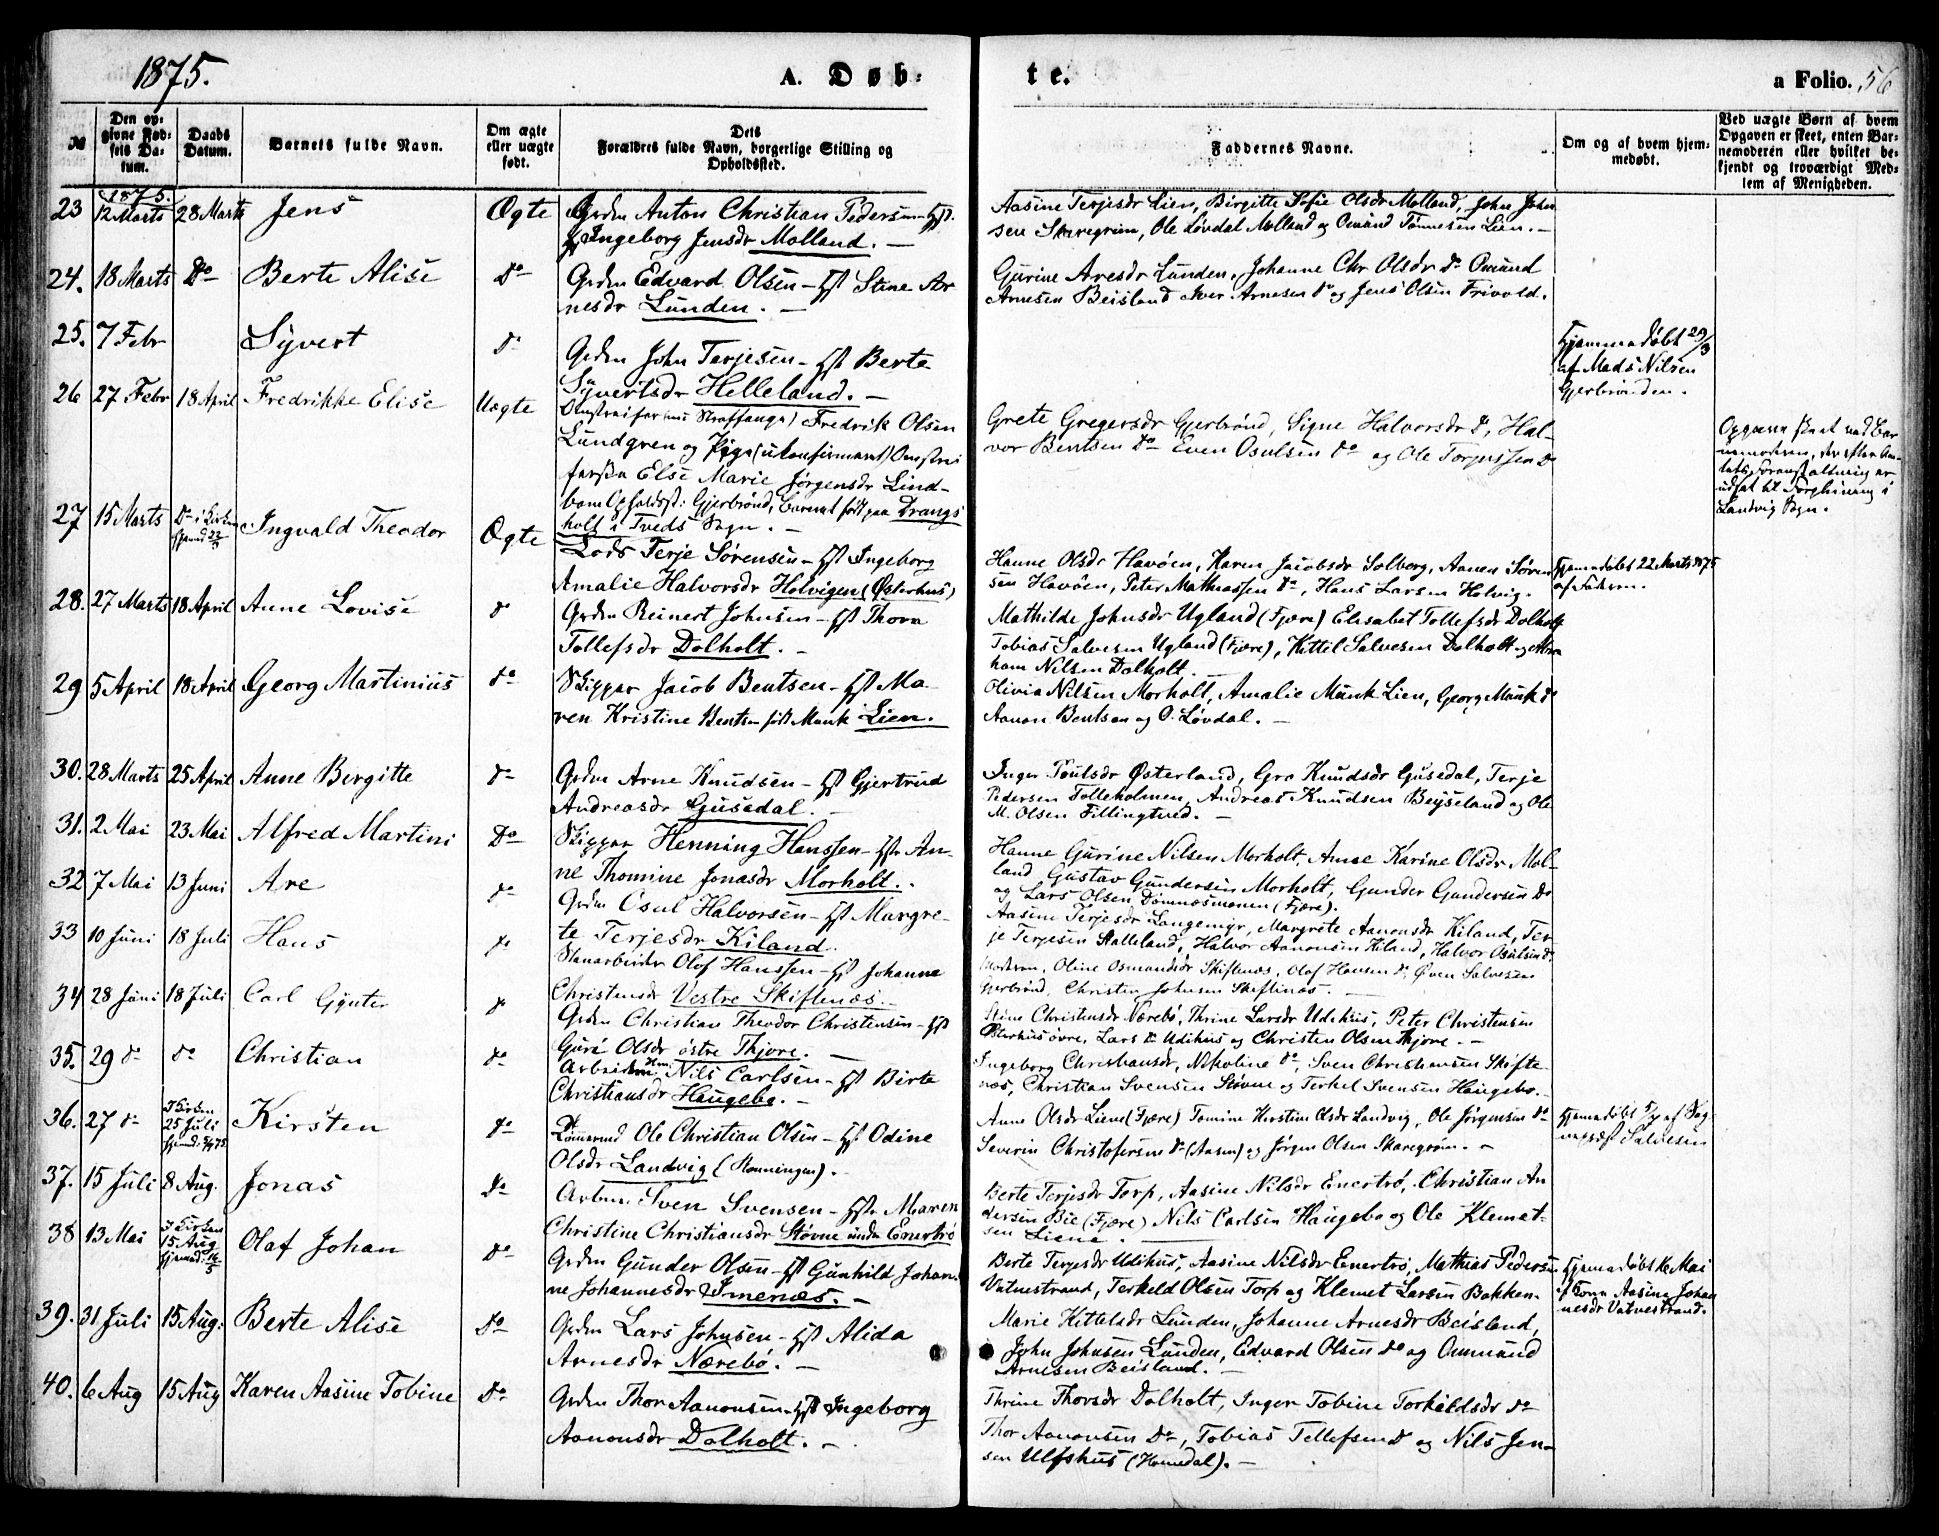 1875.
A. Døb-
te.
a Folio. 56
№
Den op-
givne Fød-
sels Da-
tum.
Daabs
Datum.
Barnets fulde Navn.
Om ægte
eller uægte
født.
Dets
Forældres fulde Navn, borgerlige Stilling og
Opholdssted.
Faddernes Navne.
Om og af hvem hjem-
medøbt.
Ved uægte Børn af hvem
Opgaven er skeet, enten Bar-
nemoderen eller hvilket be-
kjendt og troværdigt Med-
lem af Menigheden.
1875.
23 12 Marts 28 Marts Jens Ægte Grdm Anton Christian Pedersen - Hst.
Ingeborg Jensdr Molland. -
Aasine Terjesdr Lien, Birgitte Sofie Olsdr Molland, John John-
sen Skaregrøm, Ole Løvdal Molland og Omund Tønnesen Lien. -
24. 18 Marts Do Berte Alise Do Grdm Edvard Olsen - Hst Stine Ar
nesdr Lunden. -
Gurine Aresdr Lunden, Johanne Chr Olsdr Do Omund
Arnesen Beisland Iver Arnesen do og Jens Olsen Frivold.
25. 7 Febr Syvert Do Grdm John Terjesen - Hst Berte
Syvertsdr Helleland. -
Hjemmedøbt 29/3
af Mads Nilsen
Gjerbrønden.
26 27 Febr 18 April Fredrikke Elise Uægte Omstreifer (nu Straffange) Fredrik Olsen
Lundgren og Pige (ukonfirmeret) Omstrei
ferske Else Marie Jørgensdr Lind-
bom Opholdsst: Gjerbrønd, Barnet født paa Drangs
holt i Tveds Sogn. -
Grete Gregersdr Gjerbrønd, Signe Halvorsdr Do, Hal-
vor Bentsen Do Even Osulsen do og Ole Torjussen Do
Opgaven skeet ved Bar
nemoderen, der efter Am-
tets Foranstaltning er
udsat til Forpleining i
Landvig Sogn.
27 15 Marts Do i Kirken
hjemd 22/3 Ingvald Theodor Ægte Lods Terje Sørensen - Hst Ingeborg
Amalie Halvorsdr Holvigen (Østerhus)
Hanne Olsdr Havøen, Karen Jacobsdr Solborg, Aanen Søren
sen Havøen, Peter Mathiassen Do, Hans Larsen Holvig.
Hjemmedøbt 22 Marts 1875
af Faderen.
28. 27 Marts 18 April Anne Lovise do Grdm Reinert Johnsen - Hst Thora
Tollefsdr Dolholt. -
Mathilde Johnsdr Ugland (Fjære) Elisabet Tollefsdr Dolholt
Tobias Salvesen Ugland (Fjære), Kittil Salvesen Dolholt og Abra
ham Nilsen Dolholt. -
29 5 April 18 April Georg Martinius do Skipper Jacob Bentsen - Hst Ma-
ren Kristine Bentsen født Munk Lien.
Olivia Nilsen Morholt, Amalie Munk Lien, Georg Munk do
Aanon Bentsen og O. Løvdal. -
30. 28 Marts 25 April Anne Birgitte do Grdm Arne Knudsen - Hst Gjertrud
Andreasdr Gusedal. -
Inger Poulsdr Østerland, Gro Knudsdr Gusedal, Terje
Pedersen Tolleholmen, Andreas Knudsen Beiseland og Ole
M. Olsen Fillingtved. -
31. 2 Mai 23 Mai Alfred Martini Do Skipper Henning Hanssen - Hst An-
ne Thomine Jonasdr Morholt. -
Hanne Gurine Nilsen Morholt, Anne Karine Olsdr Mol-
land Gustav Gundersen Morholt, Gunder Gundersen Do
og Lars Olsen Dømnesmoen (Fjære).
32 7 Mai 13 Juni Are do Grdm Osul Halvorsen - Hst Margre-
te Terjesdr Kiland.
Aasine Terjesdr Langemyr, Margrete Aanonsdr Kiland, Ter-
je Terjesen Stalleland, Halvor Aanonsen Kiland, Halvor Osulsen do
33 10 Juni 18 Juli Hans do Stenarbeider Olof Hanssen - Hst Johanne
Christensdr Vestre Skiftenæs.
Moderen, Oline Osmundsdr Skiftenæs, Olof Hansen do, Øven Salvesen
Gjerbrønd, Christen Johnsen Skiftenæs. -
34 28 Juni 18 Juli Carl Gynter do Grdm Christian Theodor Christensen - Hst
Guri Olsdr østre Thjore. -
Stine Christensdr Nærebø, Thrine Larsdr Udihus, Peter Christensen
Østerhus øvre, Lars Do Udihus og Christen Olsen Thjore. -
35. 29 do do Christian do Arbeidsm. Nils Carlsen - Hst Birte
Christiansdr Haugebo. -
Ingeborg Christiansdr, Nikoline do, Sven Christiansen Skifte-
næs, Christian Svensen Støvne og Terkel Svensen Haugebo. -
36. 27 do I Kirken
25 Juli Kirsten do Tømmermd Ole Christian Olsen - Hst Odine
Olsdr Landvig (Stenningen).
Anne Olsdr Liene (Fjære) Tomine Kirstine Olsdr Landvig, Ole Jørgensen Do
Severin Christofersen Do (Aasen) og Jørgen Olsen Skaregrøm. -
Salvesen
37. 15 Juli 8 Aug. Jonas Do Arbm: Sven Svensen - Hst Maren
Christine Christiansdr Støvne under Enertrø
Berte Terjesdr Torp, Aasine Nilsdr Enertrø, Christian An
dersen Bie (Fjære) Nils Carlsen Haugebo og Ole Klemet-
sen Liene. -
38 13 Mai I Kirken
15. Aug
hjemd: 16/5 Olaf Johan Do Grdm Gunder Olsen - Hst Gunhild Johan-
ne Johannesdr Imenæs. -
Berte Terjesdr Udihus, Aasine Nilsdr Enertrø, Mathias Pedersen
Vatnestrand, Terkeld Olsen Torp og Klemet Larsen Bakken.
Hjemmedøbt 16 Mai
af Kone Aasine Johan
nesdr Vatnestrand.
39. 31 Juli 15 Aug: Berte Alise Do Grdm Lars Johnsen - Hst Alida
Arnesdr Nærebø. -
Marie Kittelsdr Lunden, Johanne Arnesdr Beisland,
John Johnsen Lunden, Edvard Olsen do og Ommund
Arnesen Beisland. -
40. 6 Aug 15 Aug Karen Aasine Tobine Do Grdm Thor Aanonsen - Hst Ingeborg
Aanonsdr Dolholt. -
Thrine Thorsdr Dolholt, Inger Tobine Torkildsdr do
Thor Aanonsen Do, Tobias Tellefsen Do og Nils Jen-
sen Ulfshus (Homedal). -